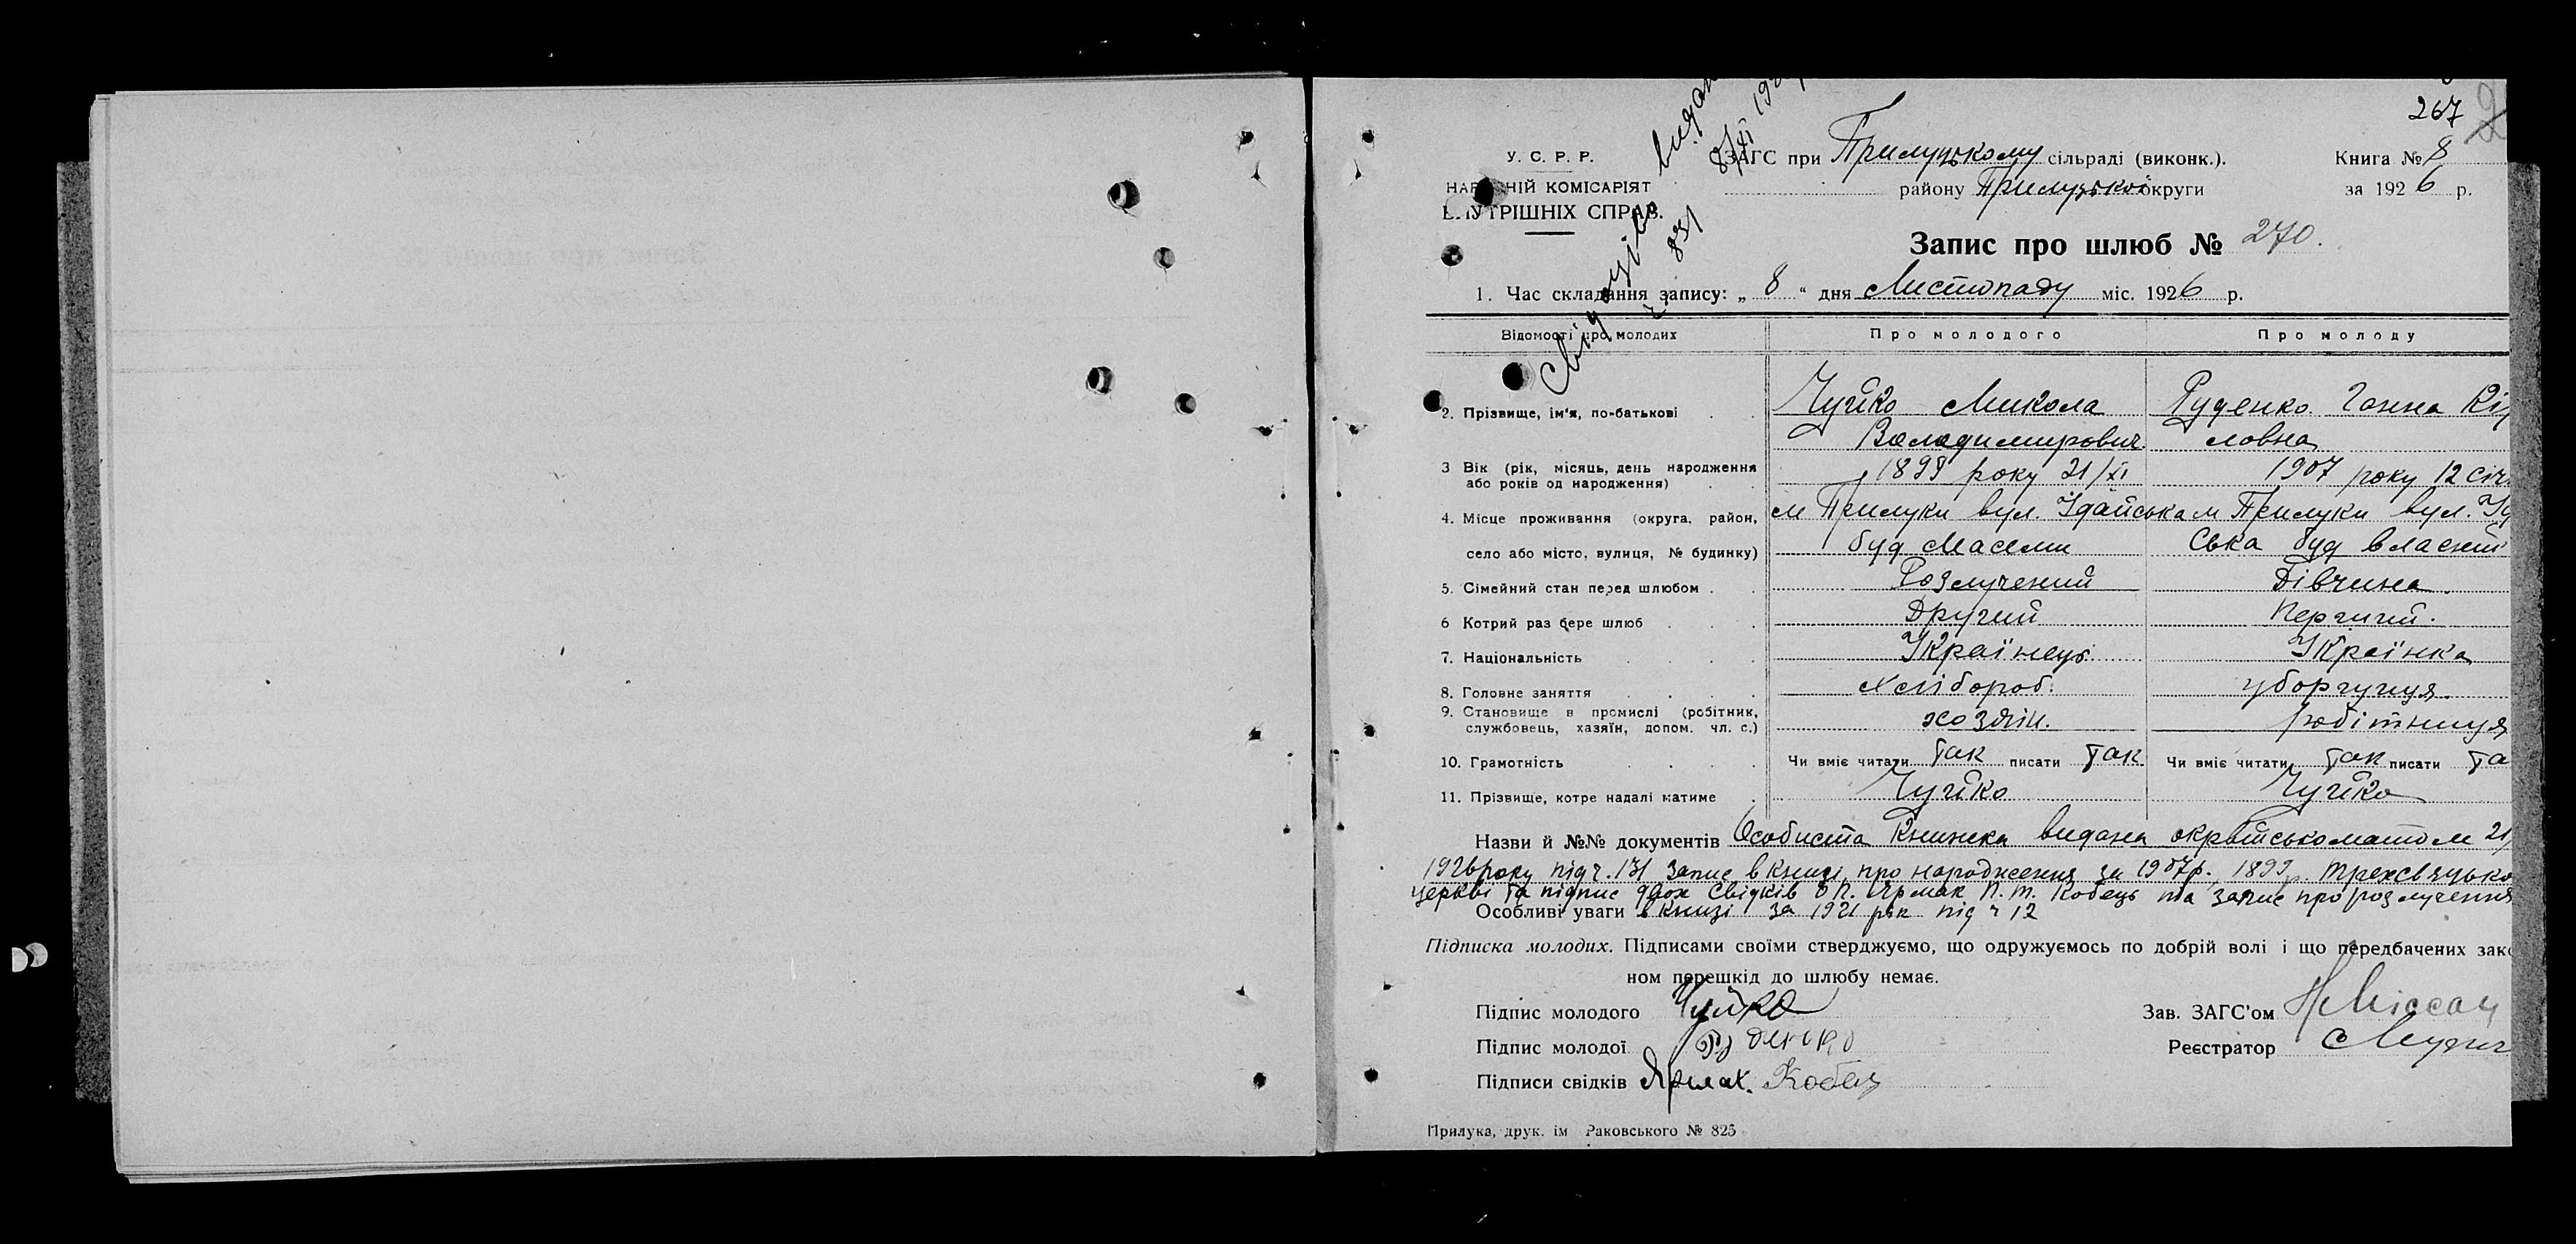 267
У. С. Р. Р.
НАРОДНІЙ КОМІСАРІЯТ
ВНУТРІШНІХ СПРАВ.
ЗАГС при Прилуцькому сільраді (виконк.).
району Прилуцької округи
Книга № 8
за 1926 р.
Свідоцтво видано
ч. 831 8/XI 192
Запис про шлюб № 270.
1. Час складання запису: „ 8 “ дня Листопаду міс. 1926 р.
Відомості про молодих Про молодого Про молоду
2. Прізвище, ім'я, по-батькові Чуйко Микола Руденко Ганна Кір
Володимирович ловна
3 Вік (рік, місяць, день народження 1899 року 21/XI 1907 року 12 січ
або років од народження)
4. Місце проживання (округа, район, м Прилуки вул. Удайська м Прилуки вул. Уд
село або місто, вулиця, № будинку) буд ська буд власний
5. Сімейний стан перед шлюбом Розлучений Дівчина
6 Котрий раз бере шлюб Другий Перший.
7. Національність Українець Українка
8. Головне заняття Хлібороб. уборщиця
9. Становище в промислі (робітник, хозяін. робітниця
службовець, хазяїн, допом. чл. с.)
10. Грамотність Чи вміє читати Так писати Так Чи вміє читати Так писати Та
11. Прізвище, котре надалі матиме Чуйко Чуйко
Назви й №№ документів Особиста Книжка видана окрвійськоматом 21/
1926 року під ч. 131 запис в книзі про народження за 1907 р., 1899 р. Трехсвяцько
церкві та підпис двох свідків Ярмак П. Т. Кобець та запис про розлучення
Особливі уваги в книзі за 1921 рік під ч 12
Підписка молодих. Підписами своїми стверджуємо, що одружуємось по добрій волі і що передбачених зако
ном перешкід до шлюбу немає.
Підпис молодого Чуйко
Зав. ЗАГС'ом
Підпис молодої Руденко
Реєстратор
Підписи свідків Ярмак. Кобец
Прилука, друк. ім Раковського № 825